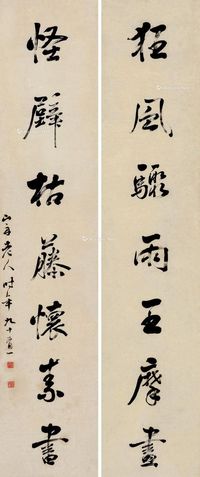 狂風驟雨王摩畫
怪壁枯藤懷素書
山舟老人時年九十一